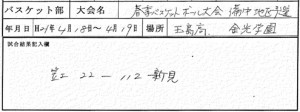 バスケット部 大会名 春季バスケットボール大会 備中地区予選
年月日 H21年4月18日〜4月19日 場所 玉島高、金光学園
試合結果記入欄
笠工 22 ― 112 新見